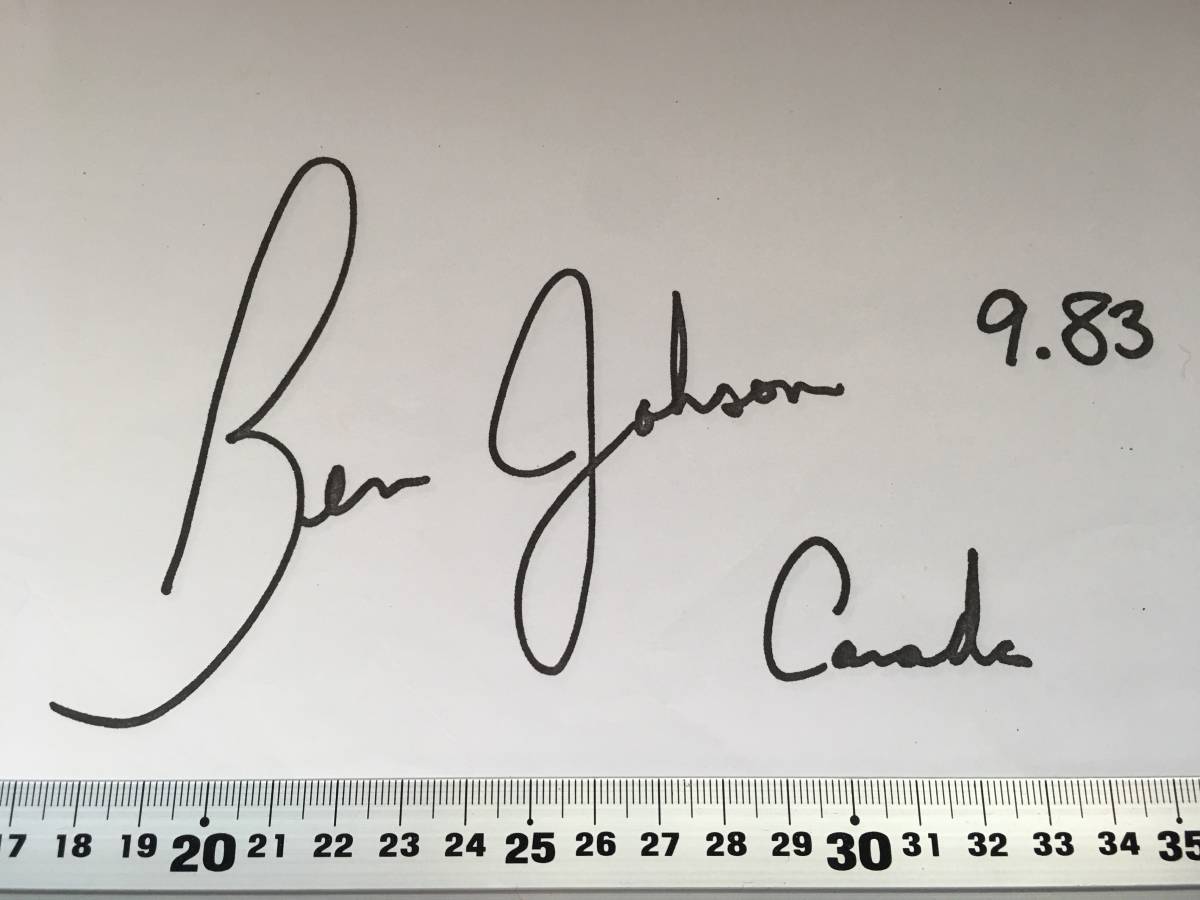 Ben Johnson 9.83
Canada
17 18 19 20 21 22 23 24 25 26 27 28 29 30 31 32 33 34 35